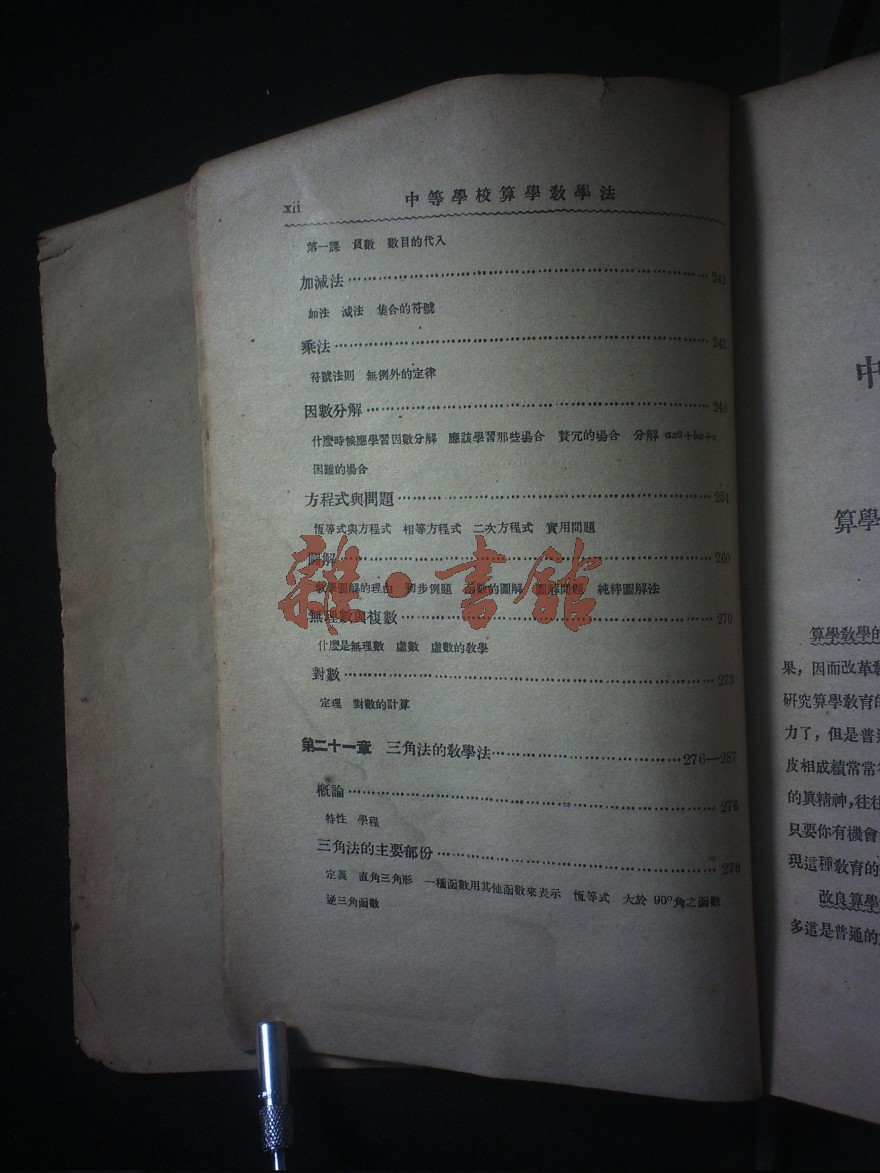 xii 中等學校算學敎學法
第一課 負數 數目的代入
加減法……242
加法 減法 集合的符號
乘法……243
符號法則 無例外的定律
因數分解……24
什麼時候應學習因數分解 應該學習那些場合 贅冗的場合 分解 ax²+bx+c
困難的場合
方程式與問題……254
恆等式與方程式 相等方程式 二次方程式 實用問題
圖解……260
敎學圖解的理由 初步例題 函數的圖解 圖解問題 純粹圖解法
無理數與複數……270
什麼是無理數 虛數 虛數的敎學
對數……273
定理 對數的計算
第二十一章 三角法的敎學法……276—287
概論……276
特性 學程
三角法的主要部份……278
定義 直角三角形 一種函數用其他函數來表示 恆等式 大於 90°角之函數
逆三角函數
雜·書館
中
算學
算學敎學的
果，因而改革敎
研究算學敎育的
力了，但是普通
皮相成績常常
的眞精神，往往
只要你有機會
現這種敎育的
改良算學
多這是普通的